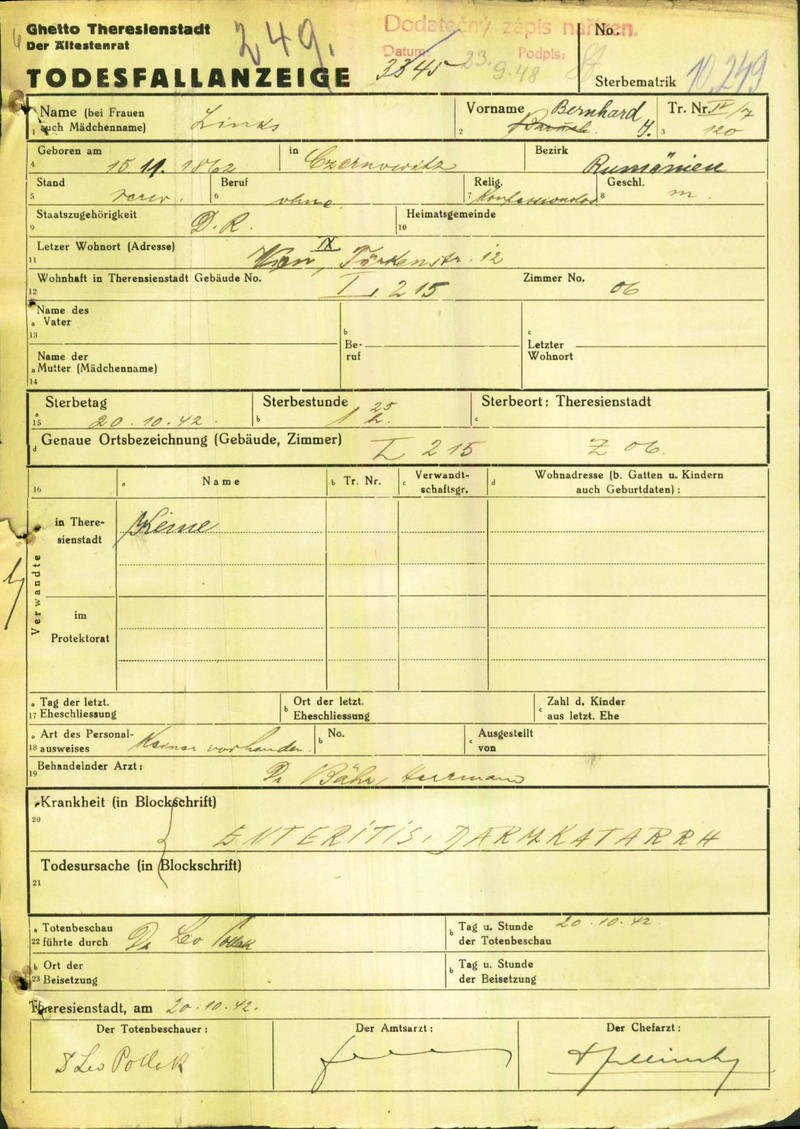 Ghetto Theresienstadt
Der Ältestenrat
TODESFALLANZEIGE
249.
3345
Dodatečný zápis nařízen.
Datum: 23. 9. 48 Podpis:
No.
Sterbematrik 10,249
Name (bei Frauen auch Mädchenname) Links
1
Vorname Bernhard J.
2
Tr. Nr. IV/7 120
3
Geboren am 15 11. 1862 in Czernowitz Bezirk Rumänien
4
Stand verw. Beruf ohne Relig. Konfessionslos Geschl. m.
5 6 7 8
Staatszugehörigkeit D. R. Heimatsgemeinde
9 10
Letzer Wohnort (Adresse) Wien, IX Türkenstr. 12
11
Wohnhaft in Therensienstadt Gebäude No. L 215 Zimmer No. 06
12
Name des Vater
a
13
b Beruf
c Letzter Wohnort
Name der Mutter (Mädchenname)
a
14
Sterbetag 20. 10. 42. Sterbestunde 1 25 h. Sterbeort: Theresienstadt
a 15 b c
d Genaue Ortsbezeichnung (Gebäude, Zimmer) L 215 Z 06.
16 a Name b Tr. Nr. c Verwandtschaftsgr. d Wohnadresse (b. Gatten u. Kindern auch Geburtdaten) :
Verwandte
in Theresienstadt Keine
im Protektorat
a 17 Tag der letzt. Eheschliessung b Ort der letzt. Eheschliessung c Zahl d. Kinder aus letzt. Ehe
a 18 Art des Personalausweises Keiner vorhanden. b No. c Ausgestellt von
19 Behandelnder Arzt: Dr Bähr, Hermann
Krankheit (in Blockschrift)
20
ENTERITIS, DARMKATARRH
Todesursache (in Blockschrift)
21
a 22 Totenbeschau führte durch Dr Leo Pollak b Tag u. Stunde der Totenbeschau 20. 10. 42.
b 23 Ort der Beisetzung b Tag u. Stunde der Beisetzung
Theresienstadt, am 20. 10. 42.
Der Totenbeschauer: Der Amtsarzt: Der Chefarzt:
Dr Leo Pollak